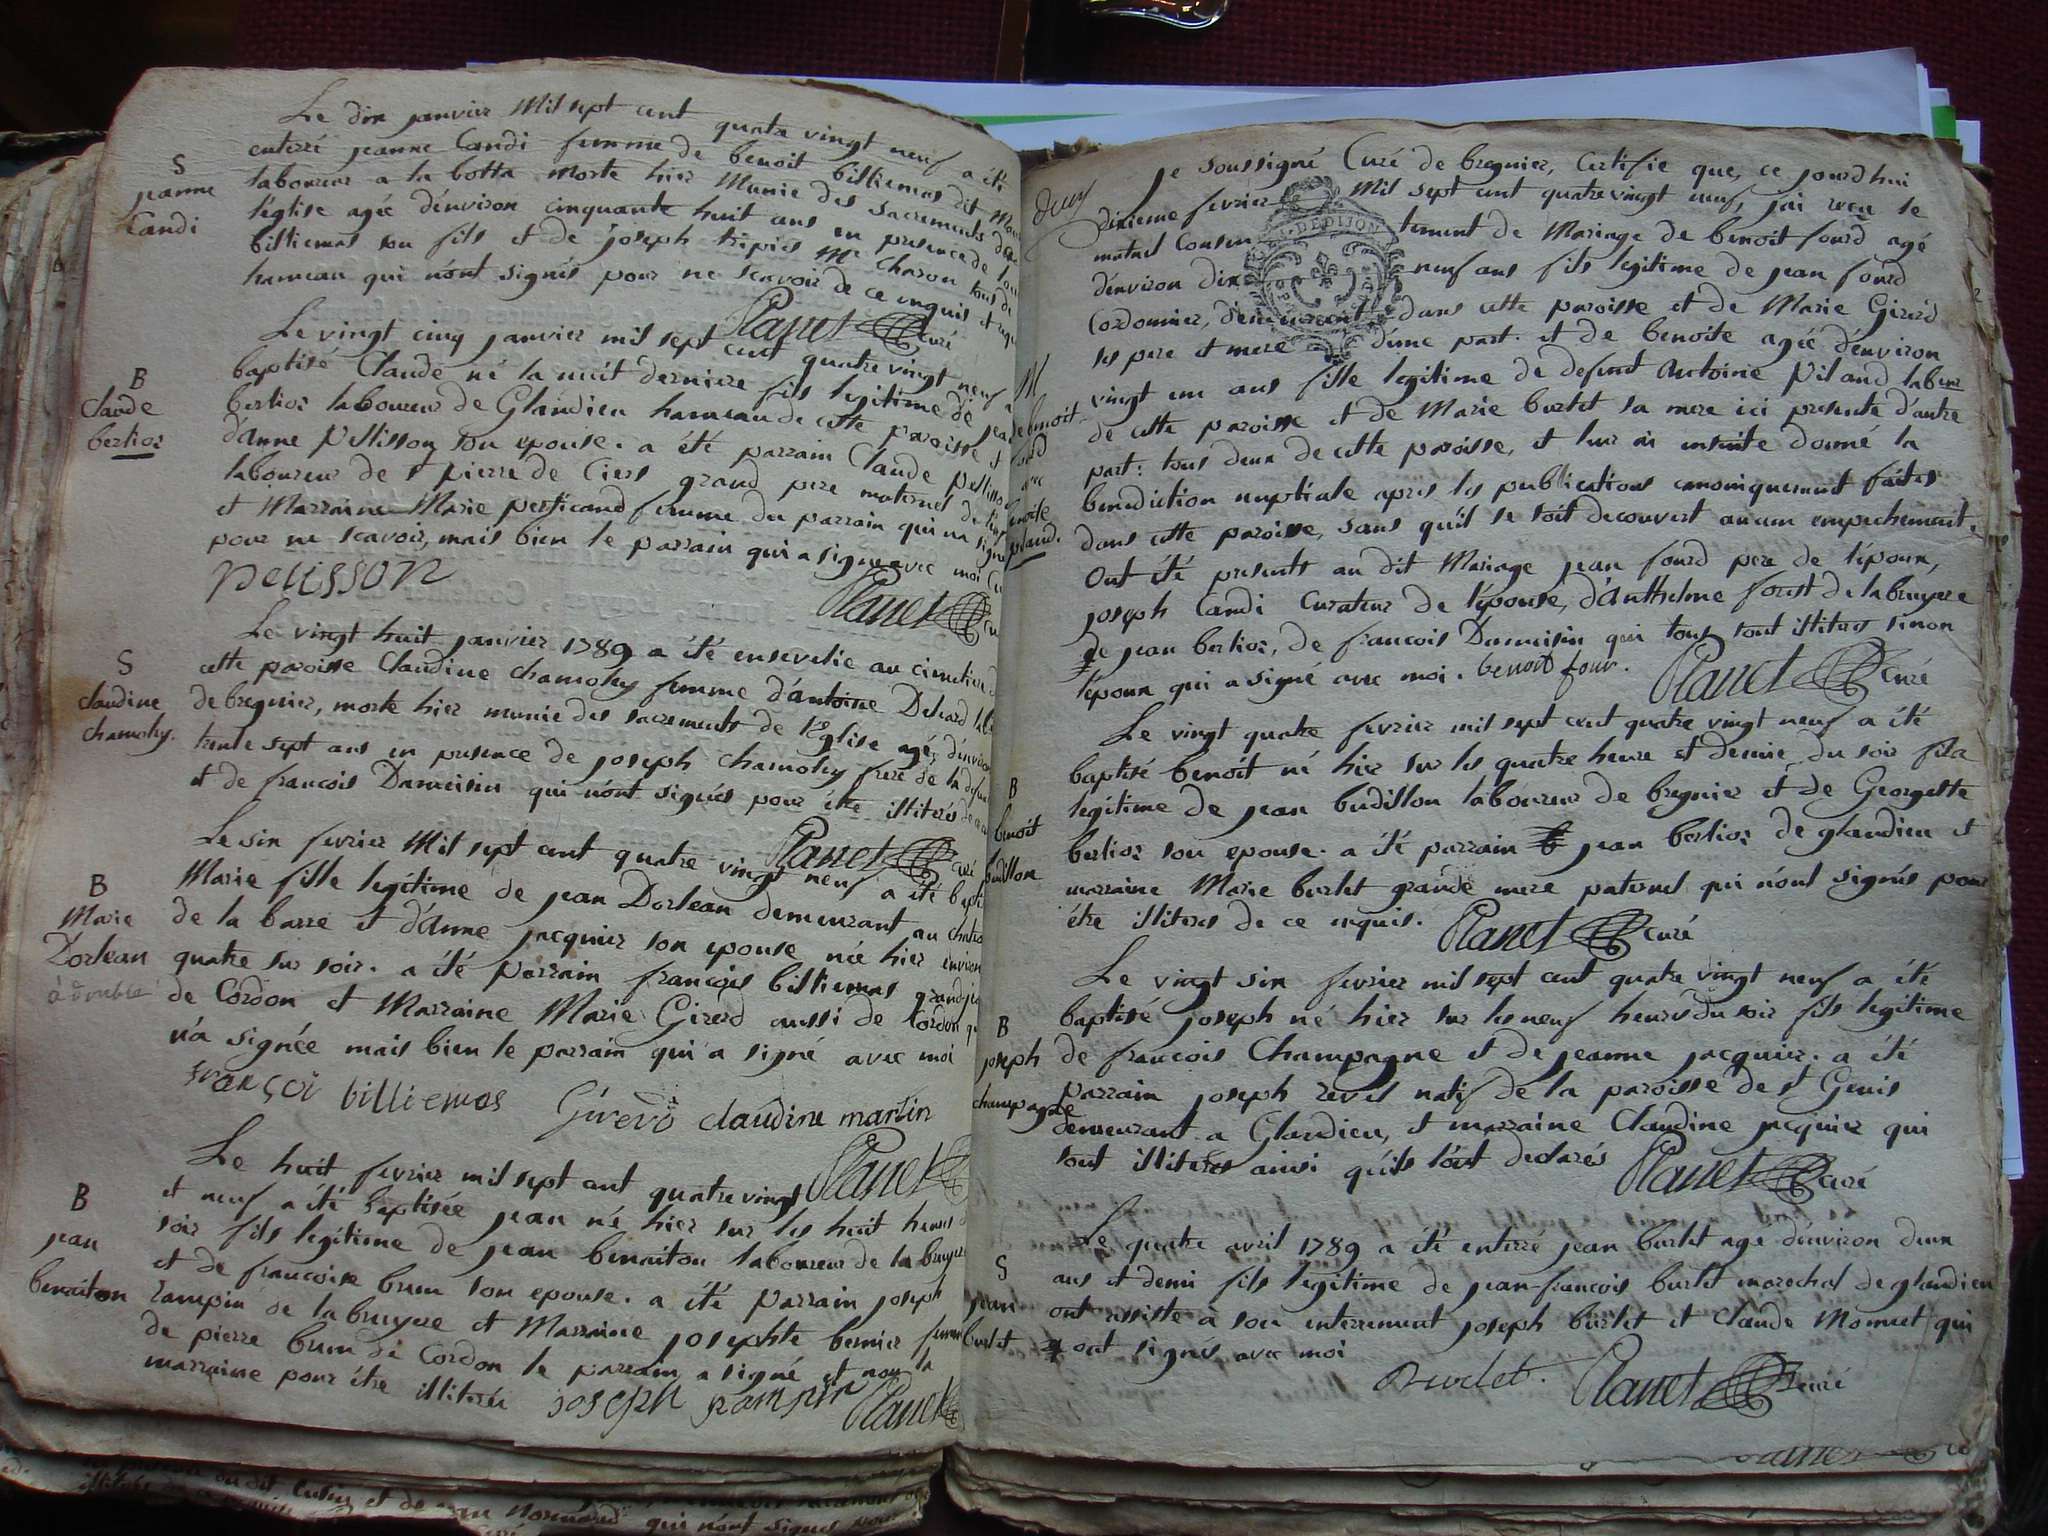 Le dix janvier mil sept cent quatre vingt neuf a été
enterré jeanne Candi femme de benoit billiemas dit
laboureur a la botta morte hier Munie des sacrements de
l'église agée d'environ cinquante huit ans en presence de
billiemas son fils et de joseph tripier Me charon tous de
hameau qui n'ont signés pour ne scavoir de ce enquis et
Planet curé
S
jeanne
Candi
Le vingt cinq janvier mil sept cent quatre vingt neuf a
baptisé Claude né la nuit derniere fils legitime de jean
berlioz laboureur de Glandieu hameau de cette paroisse et
d'anne Pellisson son epouse. a été parrain Claude
laboureur de st pierre de Ciers grand pere maternel de
et Marraine Marie femme du parrain qui n'a signé
pour ne scavoir, mais bien le parrain qui a signé avec moi
pelisson
Planet
B
Claude
berlioz
Le vingt huit janvier 1789 a été ensevelie au cimetiere
cette paroisse Claudine chamoley femme d'antoine
de bregnier, morte hier munie des sacrements de l'Eglise agé d'environ
trente sept ans en presence de joseph chamoley frere de la
et de françois Dameisin qui n'ont signés pour être illiterés
Planet curé
S
Claudine
chamoley.
Le six fevrier Mil sept cent quatre vingt neuf a été
Marie fille legitime de jean Dorlean demeurant au
de la barre et d'anne jacquier son epouse née hier environ
quatre sur soir. a été parrain françois billiemas
de Cordon et Marraine Marie Girerd aussi de Cordon
n'a signée mais bien le parrain qui a signé avec moi
françoi billiemas Girerd claudine martin
Planet
B
Marie
Dorlean
Le huit fevrier mil sept cent quatre vingt
et neuf a été baptisée jean né hier sur les huit heures
soir fils legitime de jean benaiton laboureur de la
et de francoise brun son epouse. a été parrain joseph
rampin de la bruyere et Marraine josephte bernier
de pierre brun de Cordon le parrain a signé et non la
marraine pour être illiterée joseph rampin Planet
B
jean
benaiton
deux
je soussigné Curé de bregnier, Certifie que, ce jourd'hui
dixieme fevrier Mil sept cent quatre vingt neuf, j'ai recu le
mutuel Consentement de Mariage de benoit fourd agé
d'environ dix neuf ans fils legitime de jean fourd
Cordonnier, demeurant dans cette paroisse et de Marie Girerd
ses pere et mere d'une part. et de benoite agée d'environ
vingt un ans fille legitime de defunt antoine Piland
de cette paroisse et de Marie burlet sa mere ici presente d'autre
part: tous deux de cette paroisse, et leur ai ensuite donné la
benediction nuptiale apres les publications canoniquement faites
dans cette paroisse, sans qu'il se soit decouvert aucun empechement.
Ont été presents au dit Mariage jean fourd pere de l'époux,
joseph Candi Curateur de l'épouse, d'anthelme forest de la bruyere
de jean berlioz, de françois Dameisin qui tous sont illiteres sinon
l'époux qui a signé avec moi. benoit four. Planet Curé
Le vingt quatre fevrier mil sept cent quatre vingt neuf a été
baptisé benoît né hier sur les quatre heure et demie du soir fils
legitime de jean budillon laboureur de bregnier et de Georgette
berlioz son epouse. a été parrain jean berlioz de glandieu et
marraine Marie burlet grande mere paternel qui n'ont signés pour
être illiteres de ce enquis. Planet curé
B
benoît
budillon
Le vingt six fevrier mil sept cent quatre vingt neuf a été
baptisé joseph né hier sur les neuf heures du soir fils legitime
de françois Champagne et de jeanne jacquier. a été
parrain joseph revel natif de la paroisse de st Genis
demeurant a Glandieu, et marraine Claudine jacquier qui
sont illiteres ainsi qu'ils l'ont declarés Planet curé
B
joseph
champagne
Le quatre avril 1789 a été enterré jean burlet agé d'environ deux
ans et demi fils legitime de jean-françois burlet marechal de glandieu
ont assisté à son enterrement joseph burlet et Claude Monnet qui
ont signés avec moi
Burlet. Planet curé
S
jean
burlet